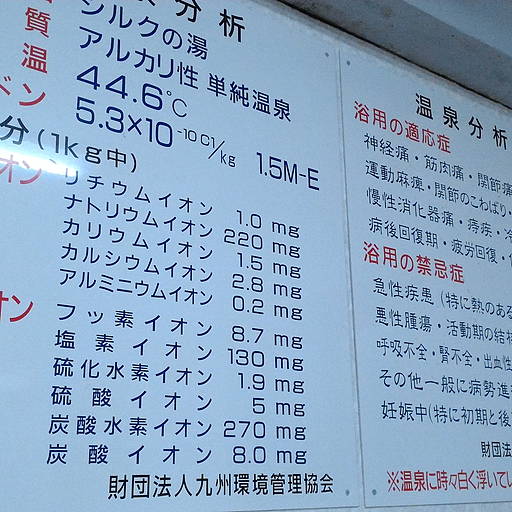 泉分析
シルクの湯
質 アルカリ性 単純温泉
温 44.6℃
ドン 5.3×10⁻¹⁰Ci/kg 1.5M-E
分(1kg中)
イオン リチウムイオン 1.0 mg
ナトリウムイオン 220 mg
カリウムイオン 1.5 mg
カルシウムイオン 2.8 mg
アルミニウムイオン 0.2 mg
オン フッ素イオン 8.7 mg
塩素イオン 130 mg
硫化水素イオン 1.9 mg
硫酸イオン 5 mg
炭酸水素イオン 270 mg
炭酸イオン 8.0 mg
財団法人九州環境管理協会
温泉分析
浴用の適応症
神経痛・筋肉痛・関節痛
運動麻痺・関節のこわばり・
慢性消化器痛・痔疾・冷
病後回復期・疲労回復・
浴用の禁忌症
急性疾患(特に熱のある
悪性腫瘍・活動期の結核
呼吸不全・腎不全・出血性
その他一般に病勢進
妊娠中(特に初期と後
財団法
※温泉に時々白く浮いてい